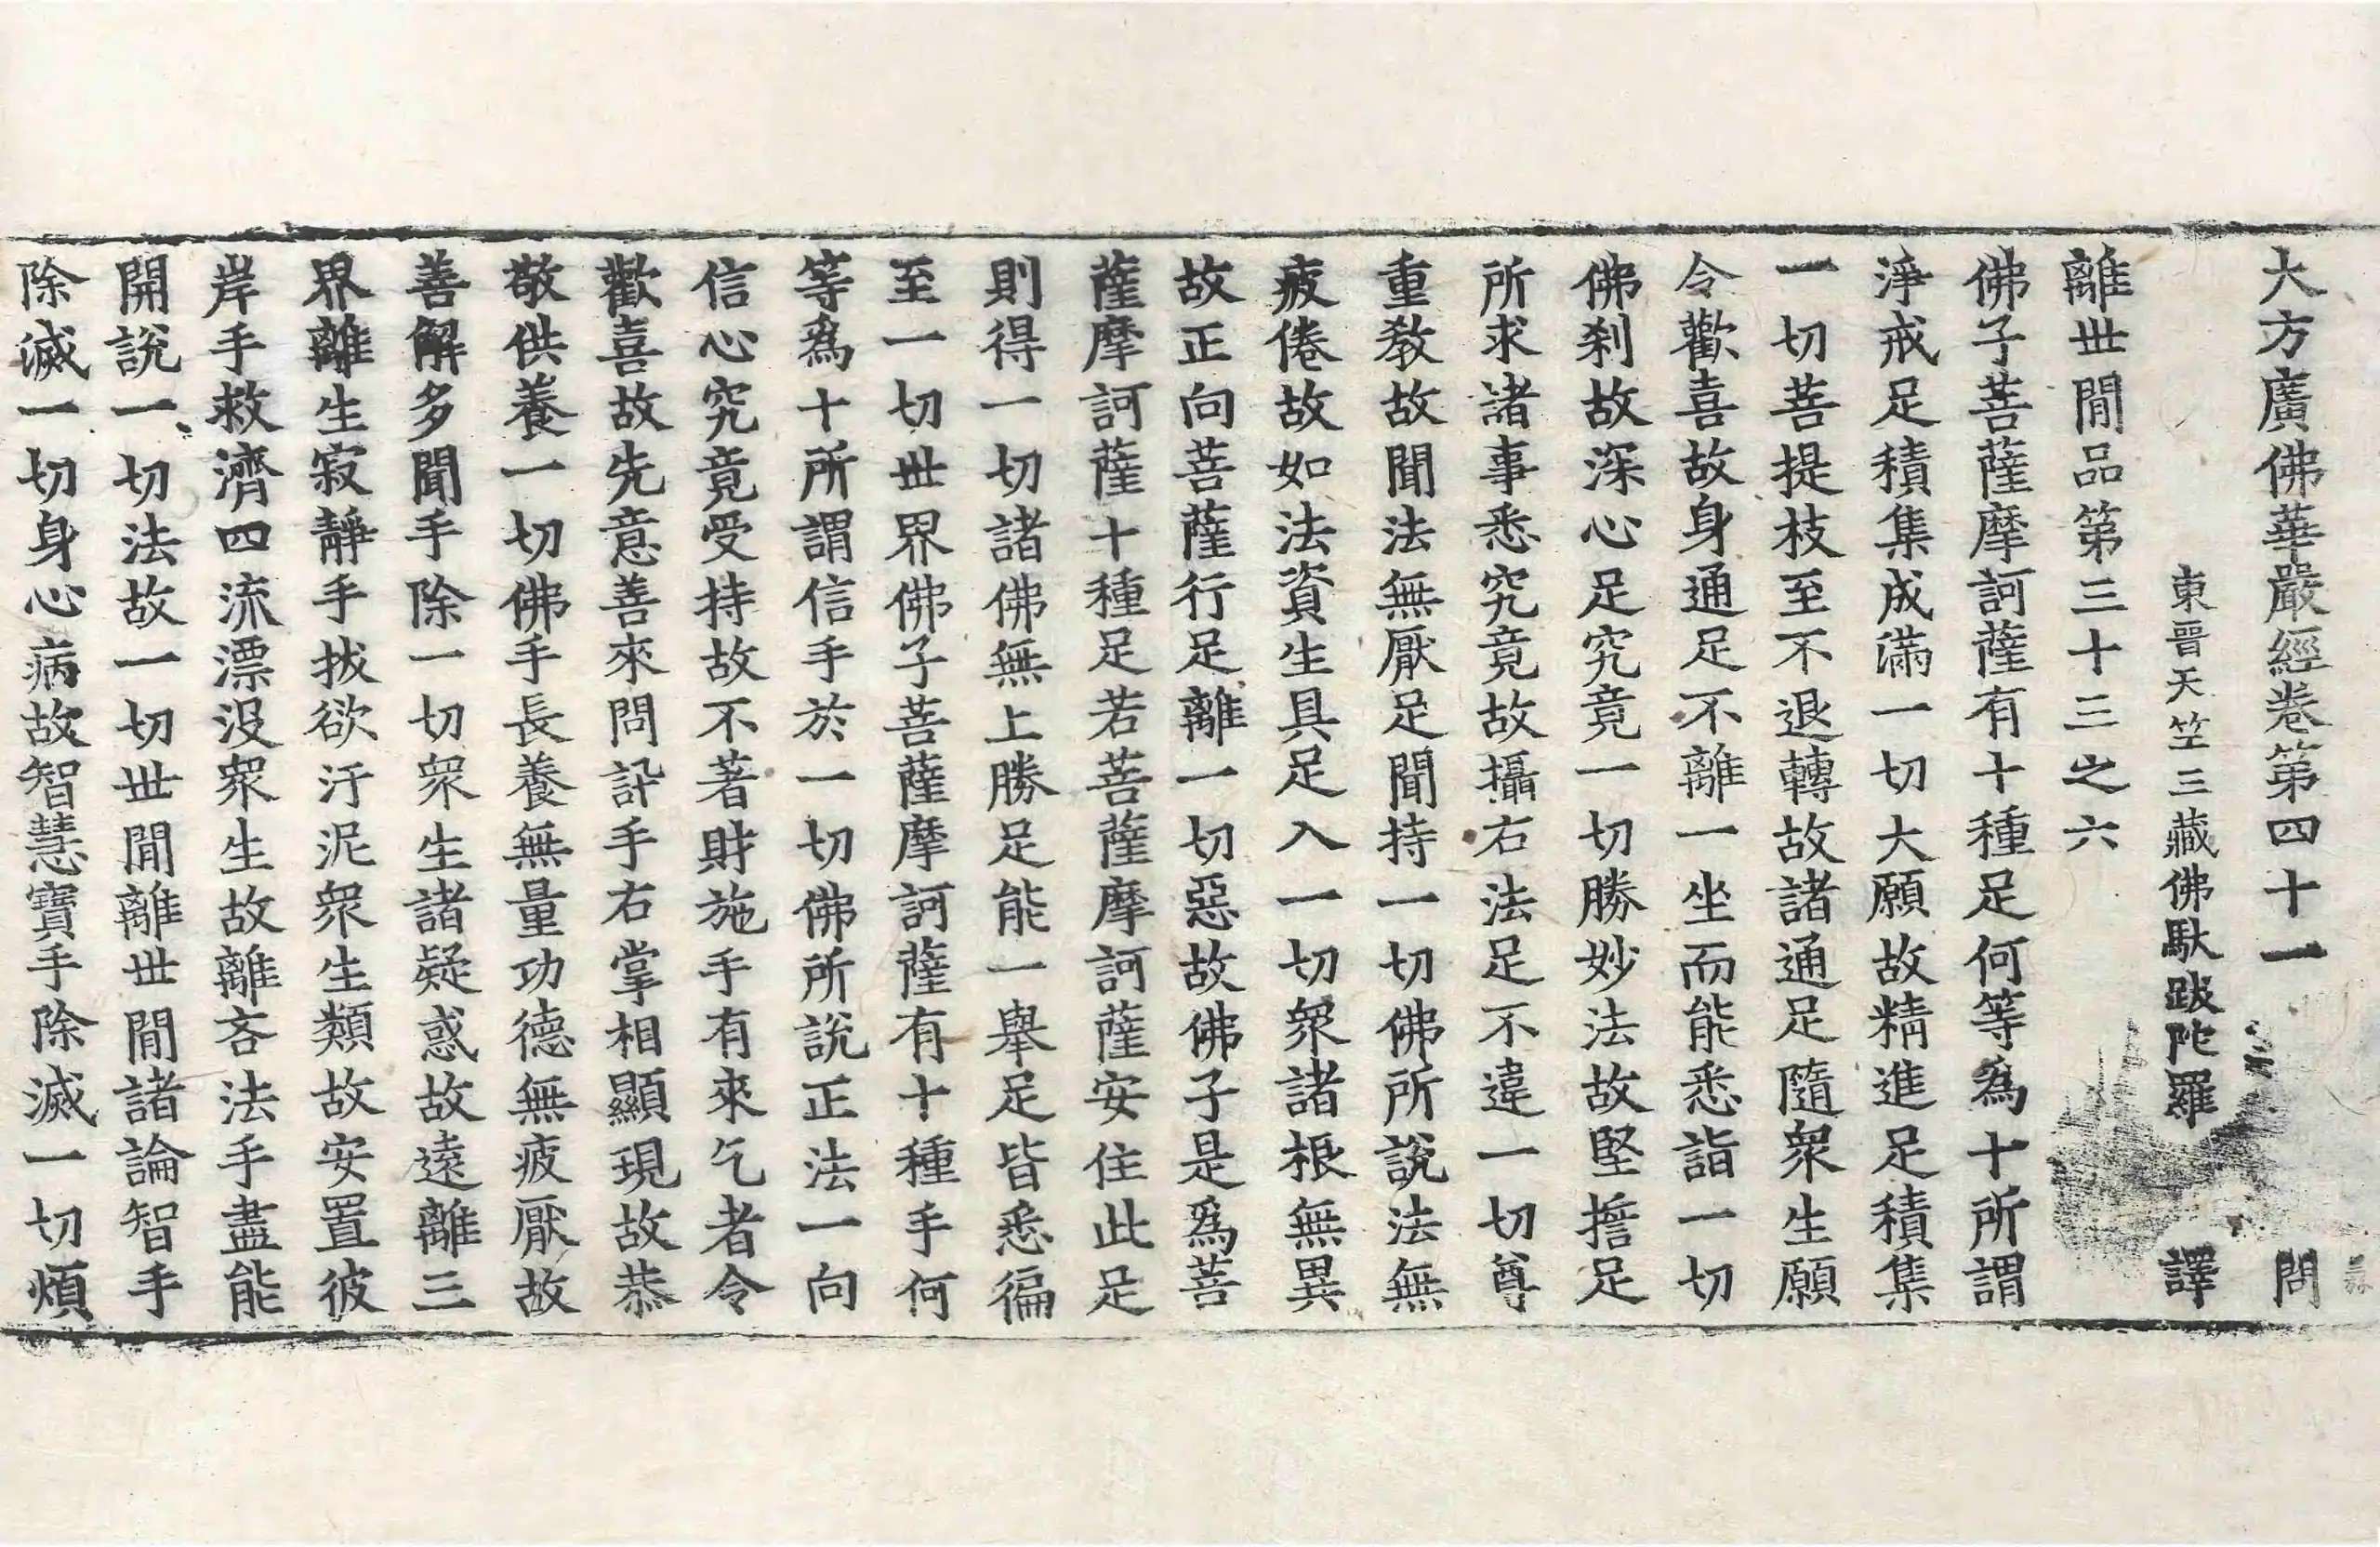 大方廣佛華嚴經卷第四十一 問
東晉天竺三藏佛馱跋陀羅 譯
離世閒品第三十三之六
佛子菩薩摩訶薩有十種足何等為十所謂
淨戒足積集成滿一切大願故精進足積集
一切菩提枝至不退轉故諸通足隨衆生願
令歡喜故身通足不離一坐而能悉詣一切
佛刹故深心足究竟一切勝妙法故堅擔足
所求諸事悉究竟故攝右法足不違一切尊
重教故聞法無厭足聞持一切佛所說法無
疲倦故如法資生具足入一切衆諸根無異
故正向菩薩行足離一切惡故佛子是爲菩
薩摩訶薩十種足若菩薩摩訶薩安住此足
則得一切諸佛無上勝足能一舉足皆悉徧
至一切世界佛子菩薩摩訶薩有十種手何
等爲十所謂信手於一切佛所說正法一向
信心究竟受持故不著財施手有來乞者令
歡喜故先意善來問訊手右掌相顯現故恭
敬供養一切佛手長養無量功德無疲厭故
善解多聞手除一切衆生諸疑惑故遠離三
界離生寂靜手拔欲汙泥衆生類故安置彼
岸手救濟四流漂没衆生故離吝法手盡能
開說一切法故一切世閒離世閒諸論智手
除滅一切身心病故智慧寶手除滅一切煩